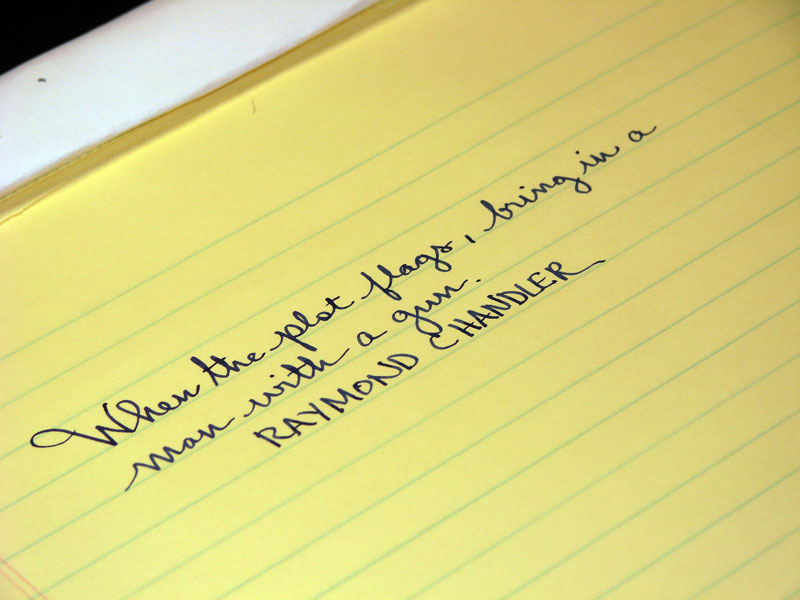 When the plot flags, bring in a
man with a gun.
RAYMOND CHANDLER